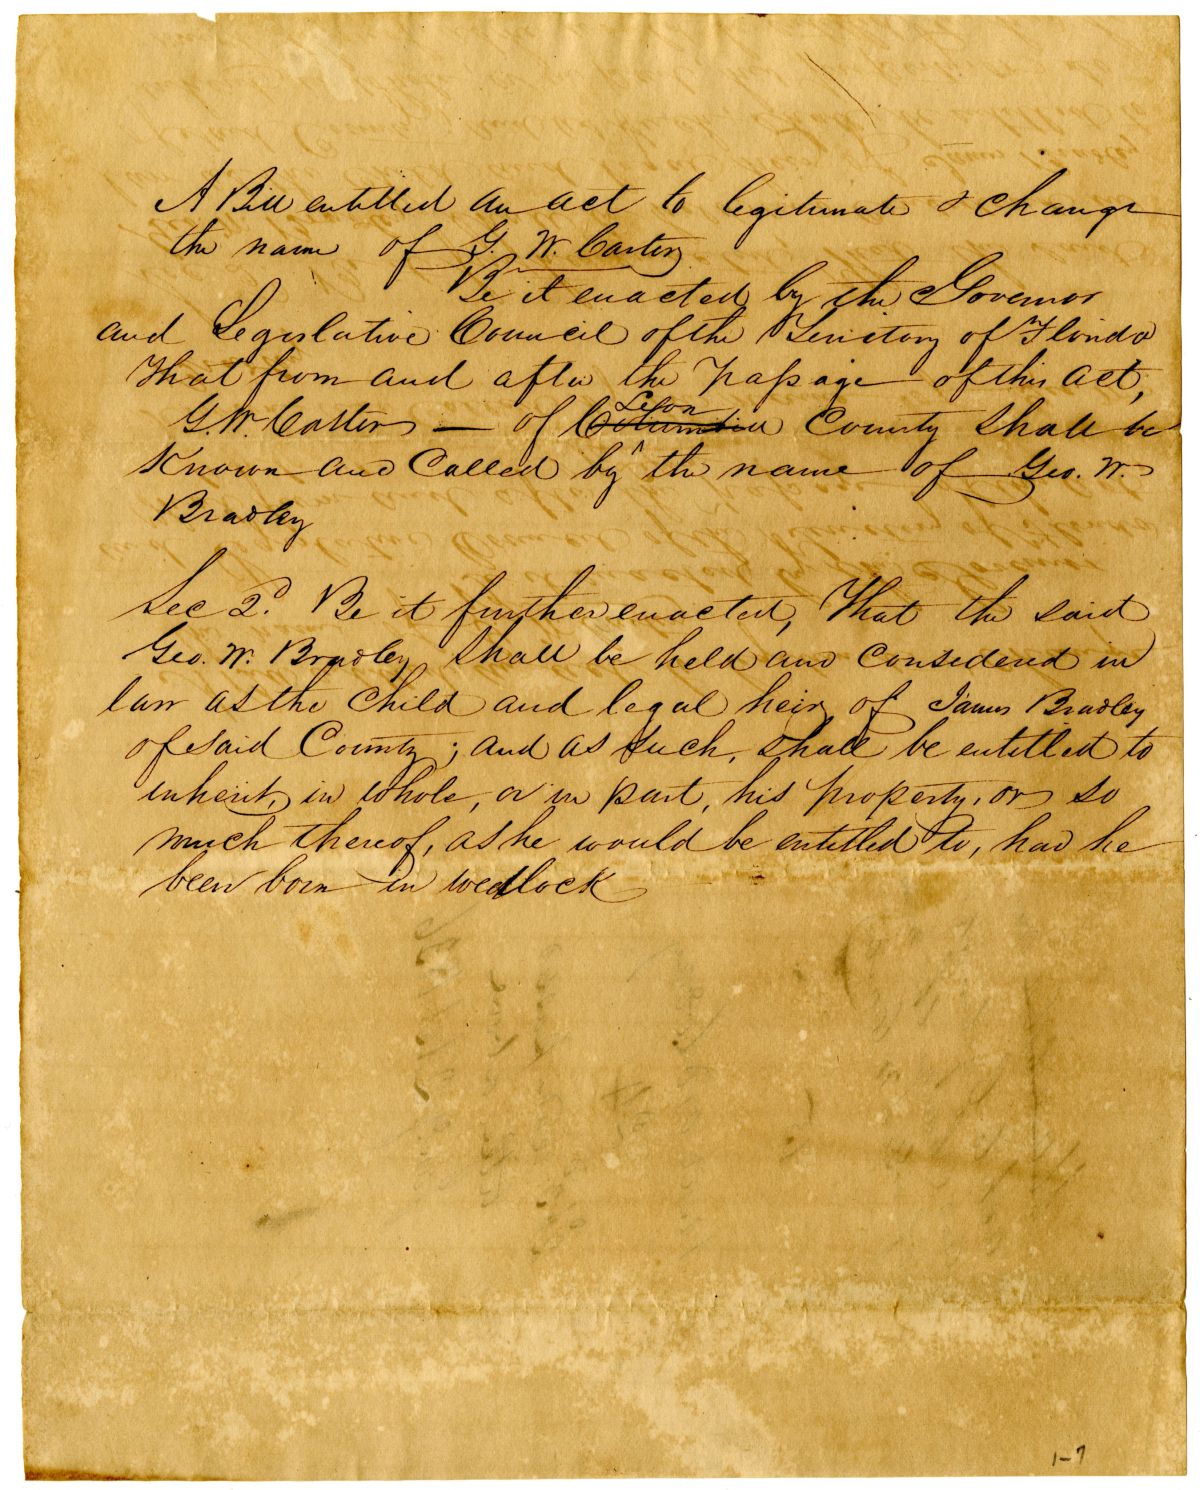 A Bill entitled an act to legitimate & change
the name of G. W. Carter
Be it enacted by the Governor
and Legislative Council of the Territory of Florida
That from and after the passage of this act,
Leon
G. W. Carter — of Columbia County shall be
Known and Called by the name of Geo. W.
Bradley
Sec 2d. Be it further enacted, That the said
Geo. W. Bradley shall be held and considered in
law as the child and legal heir of James Bradley
of said County; and as such, shall be entitled to
inherit, in whole, or in part, his property, or so
much thereof, as he would be entitled to, had he
been born in wedlock
1-7